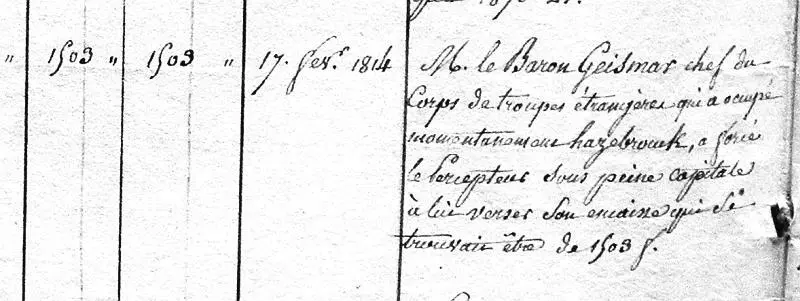 " 1503 " 1503 " 17. fevr. 1814 M. le Baron Geismar chef du
Corps de troupes étrangères qui a occupé
momentanement hazebrouck, a forcé
le Percepteur sous peine capitale
à lui verser son encaisse qui se
trouvait être de 1503 f.